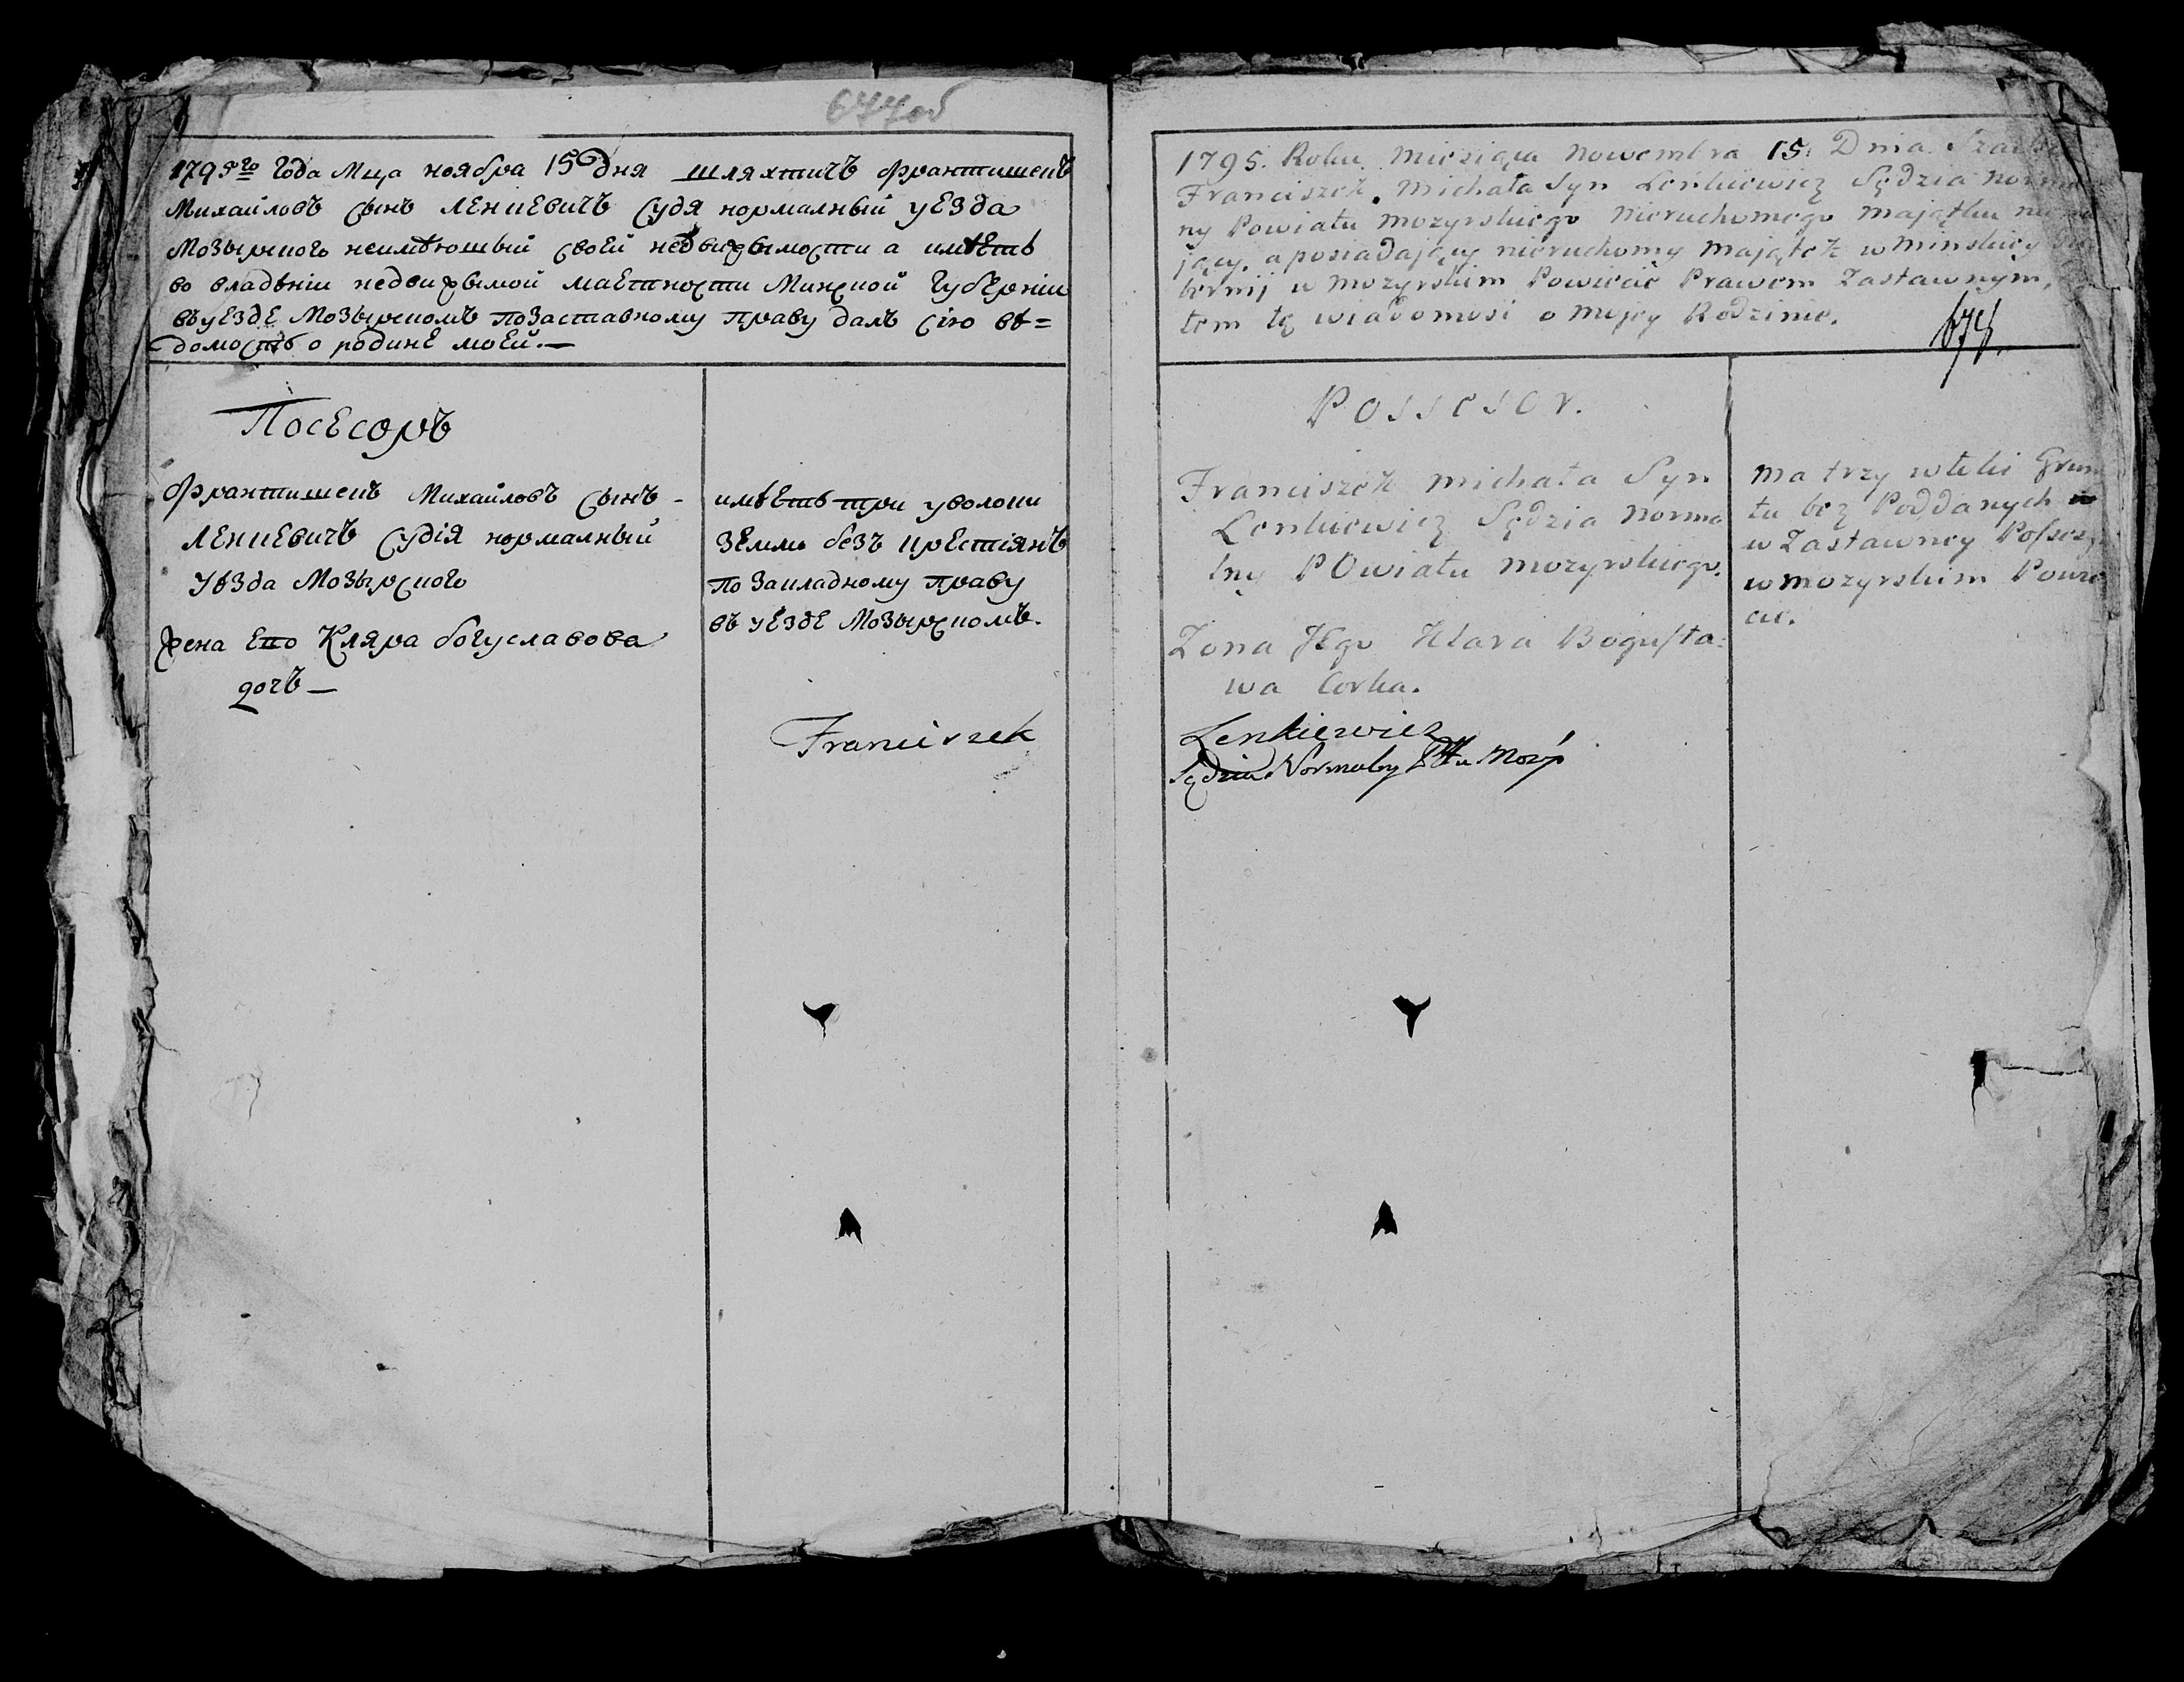 677об
1795го Года Мца ноября 15 Дня шляхтичъ францишекъ
Михайловъ сынъ ленкевичъ судя нормалный уезда
Мозырского неимѣюшый своей недвижымости а имѣетъ
во владѣнiи недвижымой маетности Минской Губернiи
въ уезде Мозырскомъ по Заставному праву далъ сiю вѣ=
домость о родине моей.—
Посесоръ
францишекъ Михайловъ сынъ -
ленкевичъ судiя нормалный
уѣзда Мозырского
жена Его Кляра богуславова
дочъ —
имѣетъ три уволоки
Земли безъ крестiянъ
по Закладному праву
въ уезде Мозырскомъ.
Franciszek
1795. Roku Miesiąca Nowembra 15. Dnia
Franciszek Michała Syn Lenkiewicz Sędzia
ny Powiatu mozyrskiego Nieruchomego Majątku
jący, a posiadający nieruchomy Majątek w Minskiey
bernij w Mozyrskim Powiecie Prawem Zastawnym,
tem tę wiadomosć o Mojey Rodzinie.
674.
Possesor.
Franciszek Michała Syn
Lenkiewicz Sędzia Norma
lny Powiatu mozyrskiego.
Zona Jego Klara Bogusła-
wa Corka.
Lenkiewicz
Sędzia Normalny Pttu Mozyr
Ma trzy włoki Grun
tu bez Poddanych
w Zastawney
w mozyrskim Powie
cie.